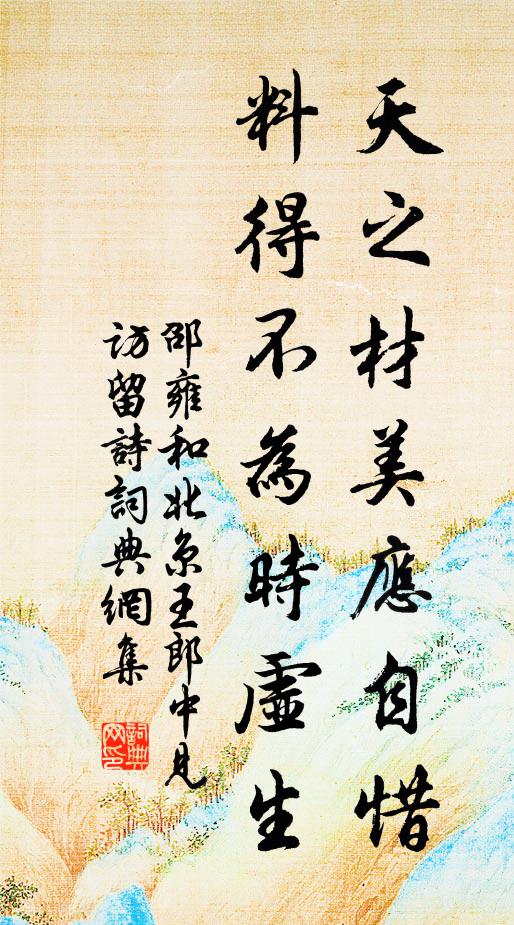 天之材美應自惜
料得不為時虛生
邵雍和北京王郎中見
訪留詩詞典網集
詞典
网印